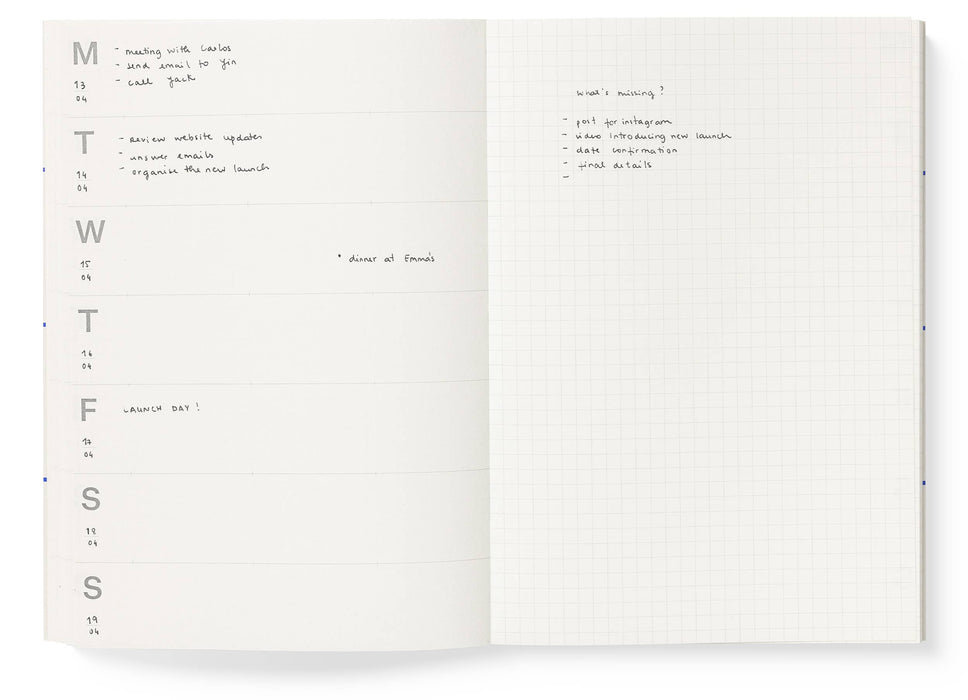 M
- meeting with Carlos
- send email to Yin
- call Jack
13
04
T
- Review website updates
- answer emails
- organise the new launch
14
04
W
15
04
• dinner at Emma's
T
16
04
F
LAUNCH DAY !
17
04
S
18
04
S
19
04
what's missing ?
- post for instagram
- video introducing new launch
- date confirmation
- final details
-